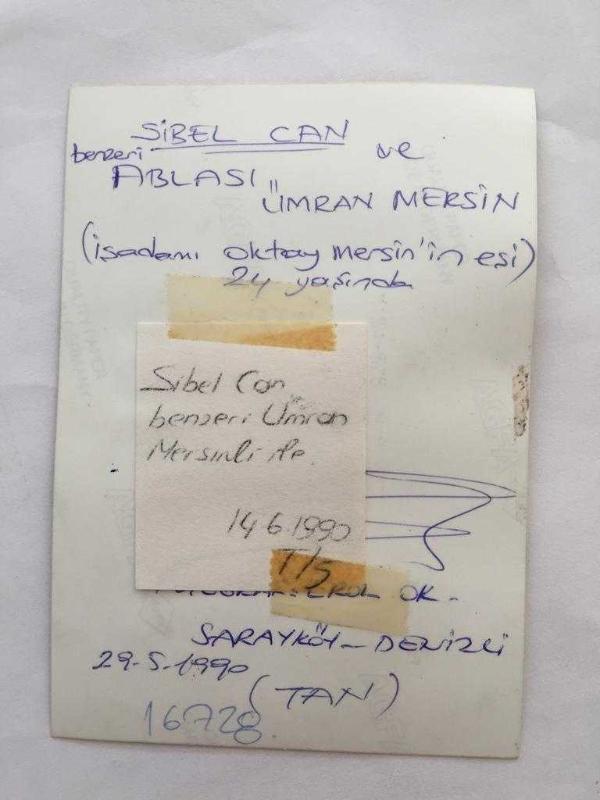 SİBEL CAN
benzeri
ve
ABLASI
ÜMRAN MERSİN
(işadamı oktay mersin'in eşi)
24 yaşında
Sibel Can
benzeri Ümran
Mersinli ile
14.6.1990
T/5
EROL OK-
SARAYKÖY-DENİZLİ
29-5-1990
(TAN)
16728